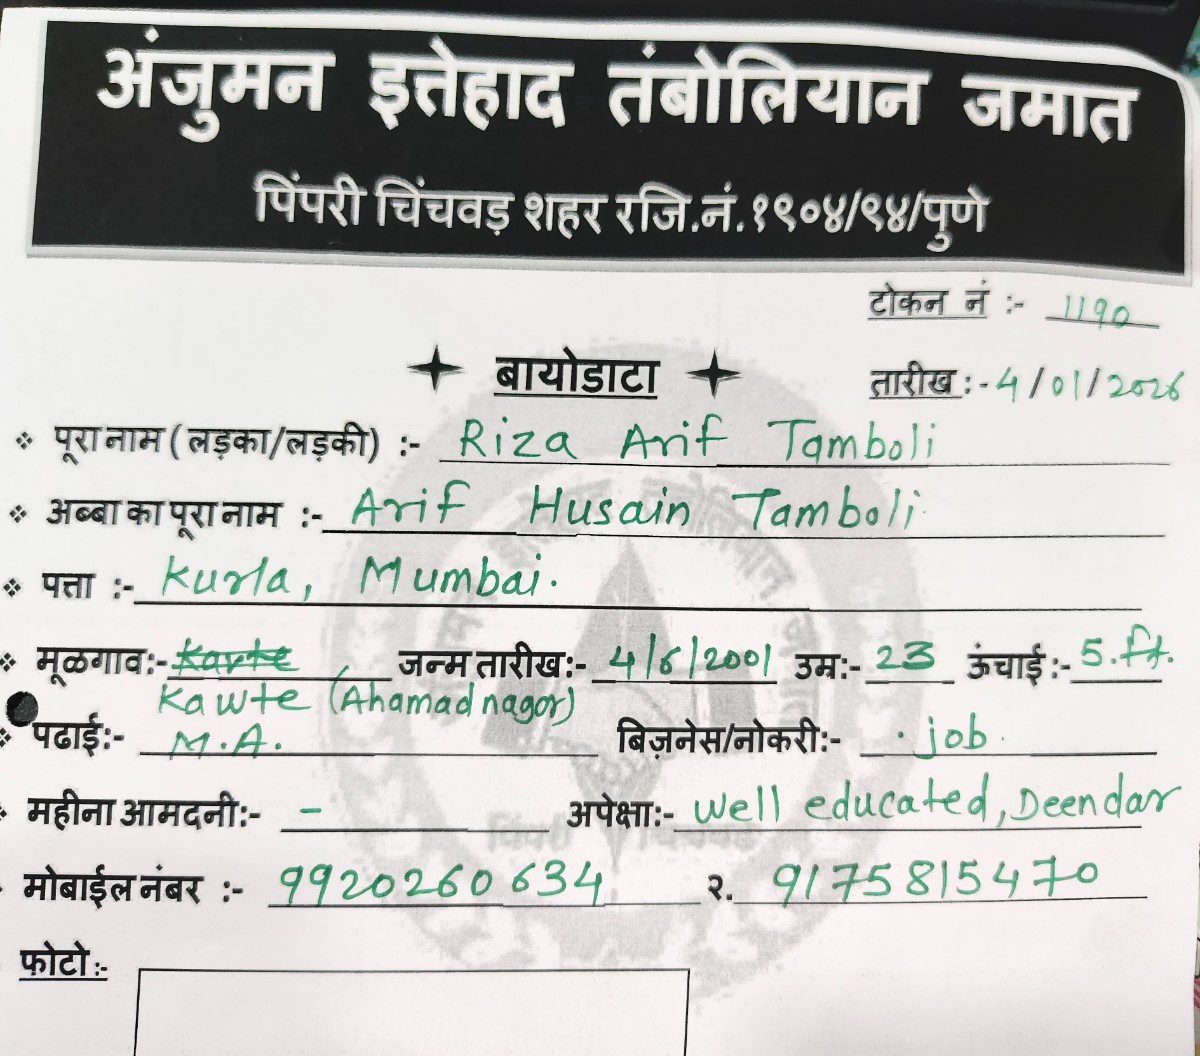 अंजुमन इत्तेहाद तंबोलियान जमात
पिंपरी चिंचवड़ शहर रजि.नं.१९०४/९४/पुणे
टोकन नं :- 1190
बायोडाटा
तारीख :- 4/01/2026
पूरा नाम ( लड़का/लड़की) :- Riza Arif Tamboli
अब्बा का पूरा नाम :- Arif Husain Tamboli
पत्ता :- Kurla, Mumbai.
मूळगाव:- Kavte जन्म तारीख:- 4/6/2001 उम्र:- 23 ऊंचाई:- 5.ft.
Kawte (Ahamadnagor)
पढाई:- M.A. बिज़नेस/नोकरी:- job.
महीना आमदनी:- - अपेक्षा:- well educated, Deendar
मोबाईल नंबर :- 9920260634 २. 9175815470
फोटो:-